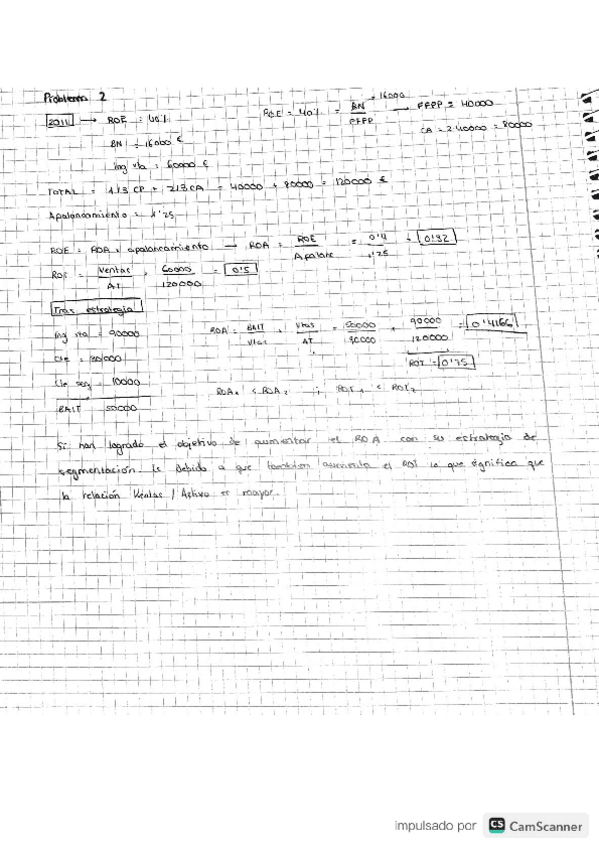 Problema 2
2011 → ROE = 40% ROE = 40% = BN → 16000 / FFPP → FFPP = 40000
BN = 16000 € CA = 2·40000 = 80000
ing vta = 60000 €
TOTAL = 1/3 CP + 2/3 CA = 40000 + 80000 = 120000 €
Apalancamiento = 1'25
ROE = ROA · apalancamiento → ROA = ROE / Apalanc = 0'4 / 1'25 = 0'32
= Ventas / AT = 60000 / 120000 = 0'5
Tras estrategia
ing vta = 90000 ROA = BAIT / Vtas · Vtas / AT = 50000 / 90000 · 90000 / 120000 = 0'4166
= 30000 ROT = 0'75
seg = 10000 ROA₁ < ROA₂ ; ROT₁ < ROT₂
BAIT 50000
Si han logrado el objetivo de aumentar el ROA con su estrategia de
segmentación. Es debido a que también aumenta el ROT lo que significa que
la relación Ventas / Activo es mayor.
impulsado por CS CamScanner